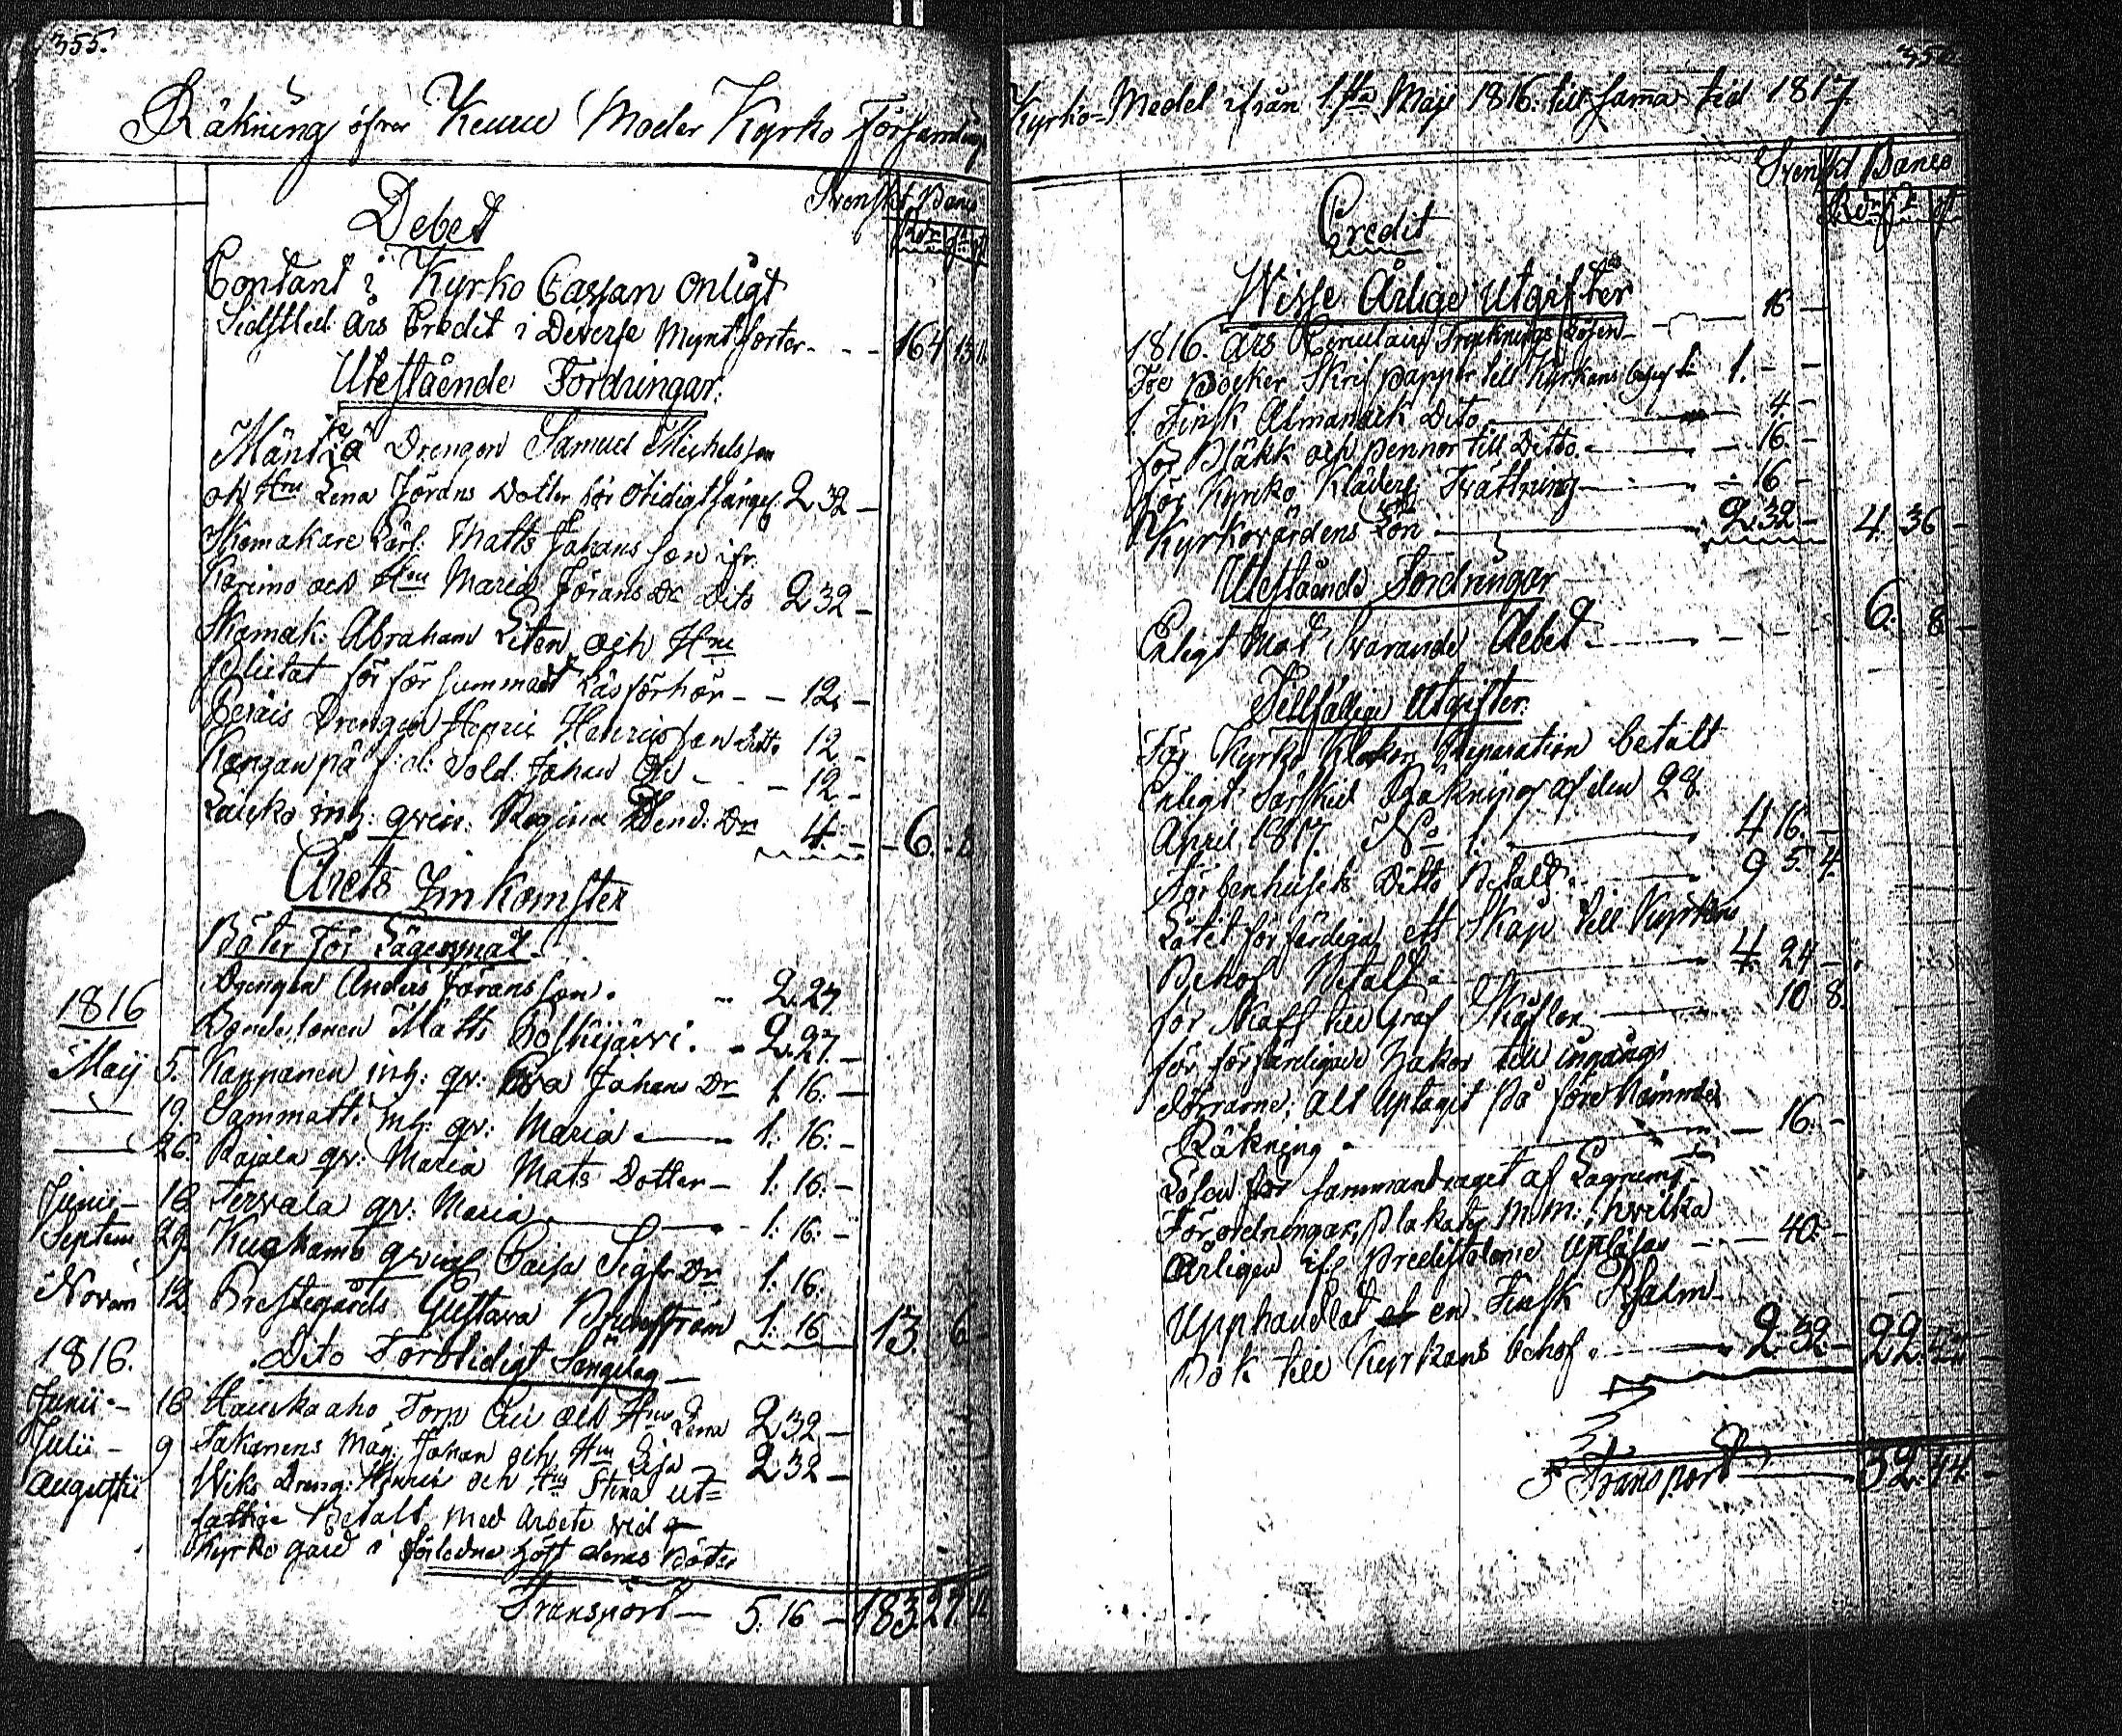 355.
Räkning öfver Keuru Moder Kyrko Församlings
Svenskt Banco
Debet
Rdr
Contant i Kyrko Cassan Enligt
Sidstled: års Credit i Diverse Myntsorter - - - 164
Utestående Fordringar.
Mäntiä Drengen Samuel Michelsson
och Hu Lena Jörans Dotter för otidigt sänglag 2 32 -
Skomakare Lärl: Matts Johansson ifr.
och Hu Maria Jörans Dr Dito 2 32 -
Skomak: Abraham Liten och Hu
för försummadt Läsförhör - - 12 -
Drengen Henric Henricsson ditto 12 -
Kanganpä Sold: Johan - - 12 -
inh: qvin: Regina Hend: Dr 4 - - 6. 8
Årets Inkomster
Böter för Lägersmål
1816
Drengen Anders Göransson - 2. 27
Bondesonen Matts - 2. 27. -
Maij 5. Kappanen inh: qv: Eva Johans Dr 1. 16. -
19. Sammatti inh: qv: Maria - 1. 16. -
26. Rajala qv: Maria Mats Dotter - 1. 16. -
Junii - 16 Tervala qv: Maria - 1. 16. -
Septem 29. qvins Caisa Sigfr: Dr 1. 16.
Novem 12 Prestegårds Gustava 1. 16 13. 6 -
1816.
Dito För otidigt Sängelag -
Junii - 16 Torp och Hu Lena 2 32 -
Julii - 9 Måg: Johan och Hu Lisa - 2 32 -
Augusti Wiks Dräng: Henric och Hu Stina ut=
fattige Betalt med arbete vid
Kyrko gård i förledne höst deras Böter
Transport - 5. 16 - 183 27. 11
Kyrko-Medel ifrån 1:sta Maji 1816 till sama tid 1817
Svenskt Banco
Credit
Wisse Årlige Utgifter
1816. års Circulairs Trycknings Lösen - 16 -
Tre Böcker Skrifpapper till Kyrkans behof 1. - -
1. Finsk Almanack Dito - 4. -
för Bläkk och Pennor till Ditto - 16. -
för Kyrko Kläders Tvättning - 16 -
Kyrkovärdens Lön - 2. 32 - 4. 36 -
Utestående Fordringar
Enligt Mot Svarande Debet - 6. 8 -
Tillfällige Utgifter.
För Kyrko Klockors Reparation betalt
Enligt särskild Räkning af den 28
April 1817. No 1. - 4 16. -
Ditto Betalt - 9 5. 4.
Låtit förfärdiga ett Skåp till Kyrkans
Behof Betalt - 4 24 -
för Skaft till Graf Skåflor - 10 8.
för förfärdigade Hakar till ingångs
dörrarne, alt uptagit på före Nämnde
Räkning - 16. -
Lösen för sammandraget af
Förordningar, Plakater m.m: hvilka
Årligen ifr Predikstolarne Upläsas - 40. -
Upphandlat en Finsk Psalm-
Bok till Kyrkans behof - 2. 32 - 22.
Transport - 32. 44. -